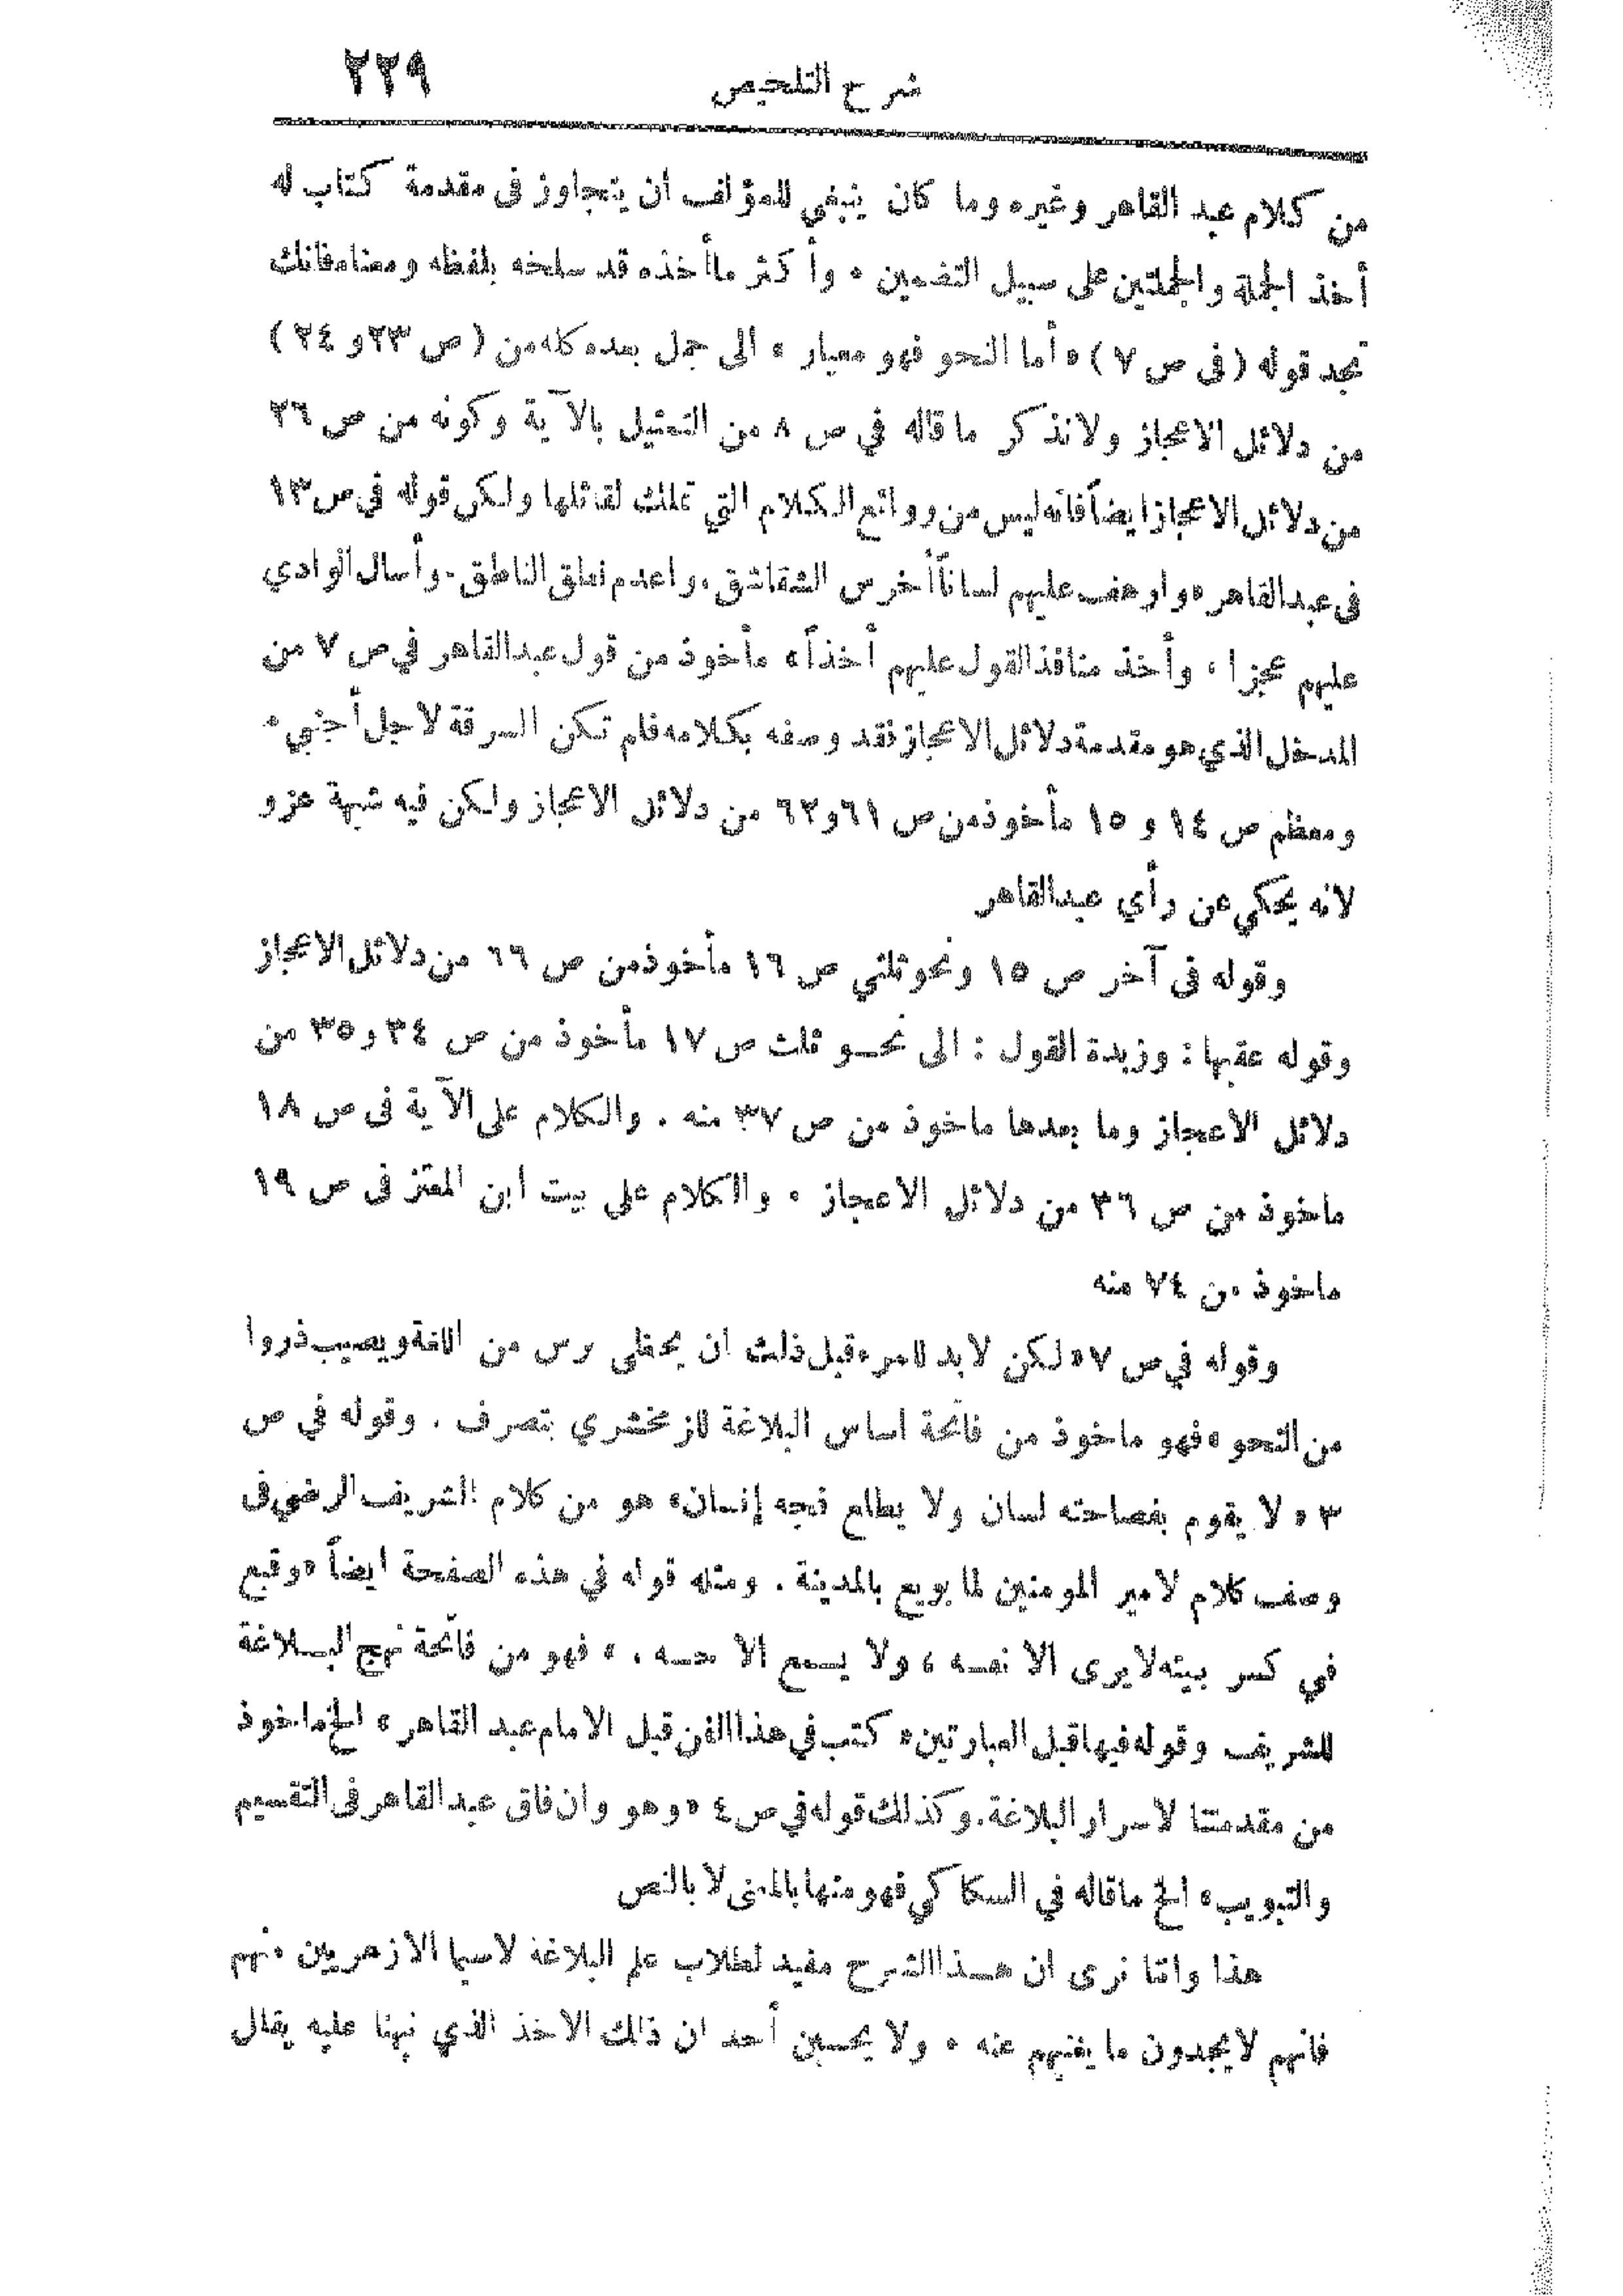 شرح التلخيص ٢٢٩
من كلام عبد القاهر وغيره وما كان ينبغي للمؤلف أن يتجاوز في مقدمة كتاب له
أخذ الجملة والجملتين على سبيل التضمين ٠ وأكثر ما أخذه قد سلخه بلفظه ومعناه فانك
تجد قوله (في ص ٧) «أما النحو فهو معيار» الى جمل بعده كله من (ص ٢٣ و ٢٤)
من دلائل الاعجاز ولا نذكر ما قاله في ص ٨ من التمثيل بالآية وكونه من ص ٢٦
من دلائل الاعجاز ايضاً فانه ليس من روائع الكلام التي تملك لقائلها ولكن قوله في ص ١٣
في عبد القاهر «وارهف عليهم لساناً أخرس الشقاشق، واعدم نطق الناطق. وأسال الوادي
عليهم عجزا، وأخذ منافذ القول عليهم أخذاً» مأخوذ من قول عبد القاهر في ص ٧ من
المدخل الذي هو مقدمة دلائل الاعجاز فقد وصفه بكلامه فلم تكن السرقة لاجل أجنبي ٠
ومعظم ص ١٤ و ١٥ مأخوذ من ص ٦١ و ٦٢ من دلائل الاعجاز ولكن فيه شبهة عزو
لانه يحكي عن رأي عبد القاهر
وقوله في آخر ص ١٥ ونحو ثلثي ص ١٦ مأخوذ من ص ٦٦ من دلائل الاعجاز
وقوله عقبها : وزبدة القول : الى نحو ثلث ص ١٧ مأخوذ من ص ٣٤ و ٣٥ من
دلائل الاعجاز وما بعدها ماخوذ من ص ٣٧ منه . والكلام على الآية في ص ١٨
ماخوذ من ص ٣٦ من دلائل الاعجاز ٠ والكلام على بيت ابن المعتز في ص ١٩
ماخوذ من ٧٤ منه
وقوله في ص ٧ «لكن لا بد للمرء قبل ذلك ان يحظى برس من اللغة ويصيب ذروا
من النحو» فهو ماخوذ من فاتحة اساس البلاغة للزمخشري بتصرف . وقوله في ص
٣ «لا يقوم بفصاحته لسان ولا يطلع فجه إنسان» هو من كلام الشريف الرضي في
وصف كلام لامير المومنين لما بويع بالمدينة . ومثله قوله في هذه الصفحة ايضاً «وقبع
في كسر بيته لا يرى الا نفسه، ولا يسمع الا حسه، » فهو من فاتحة نهج البلاغة
للشريف وقوله فيها قبل العبارتين «كتب في هذا الفن قبل الامام عبد القاهر» الخ ماخوذ
من مقدمتنا لاسرار البلاغة. وكذلك قوله في ص ٤ «وهو وان فاق عبد القاهر في التقسيم
والتبويب» الخ ما قاله في السكاكي فهو منها بالمعنى لا بالنص
هذا واننا نرى ان هذا الشرح مفيد لطلاب علم البلاغة لاسيما الازهريين منهم
فانهم لا يجدون ما يغنيهم عنه ٠ ولا يحسبن أحد ان ذلك الاخذ الذي نبهنا عليه يقال